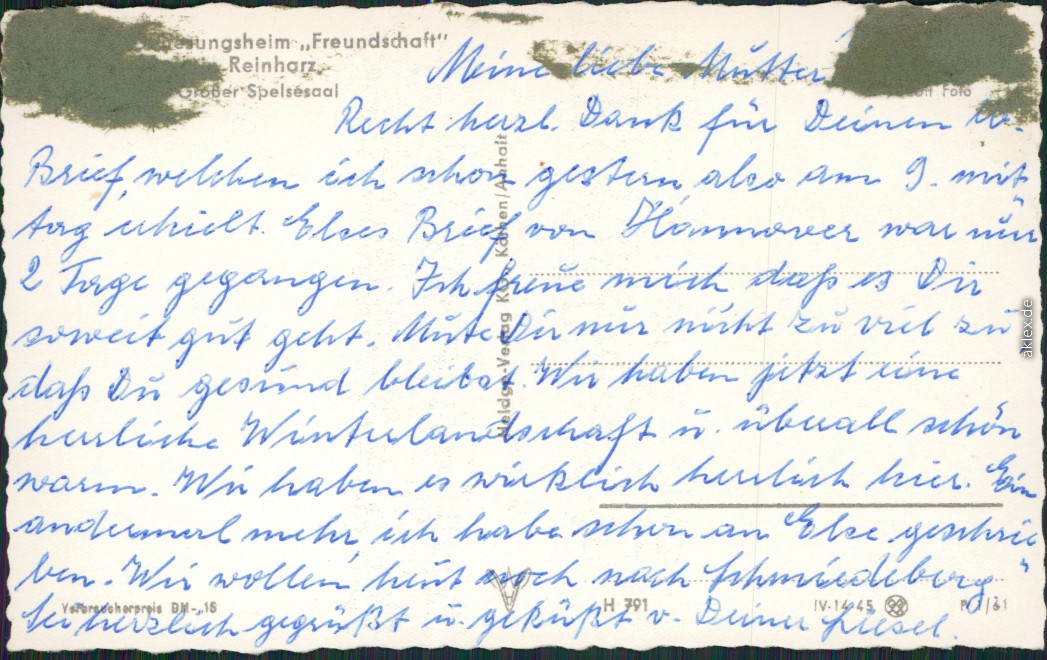 esungsheim „Freundschaft"
Reinharz
Großer Speisesaal
Foto
Meine liebe Mutter
Recht herzl. Dank für Deinen lb.
Brief, welchen ich schon gestern also am 9. mit
tag erhielt. Elses Brief von Hannover war nur
2 Tage gegangen. Ich freue mich daß es Dir
soweit gut geht. Mute Dir nur nicht zu viel zu
daß Du gesund bleibst. Wir haben jetzt eine
herrliche Winterlandschaft u. überall schön
warm. Wir haben es wirklich herrlich hier. Ein
andermal mehr ich habe schon an Else geschrie
ben. Wir wollen heut noch nach Schmiedeberg
Sei herzlich gegrüßt u. geküßt v. Deiner Liesel.
Heldge-Verlag KG., Köthen/Anhalt
Verbraucherpreis DM -,15
H 791
IV-14-45
P 1/61
aklex.de